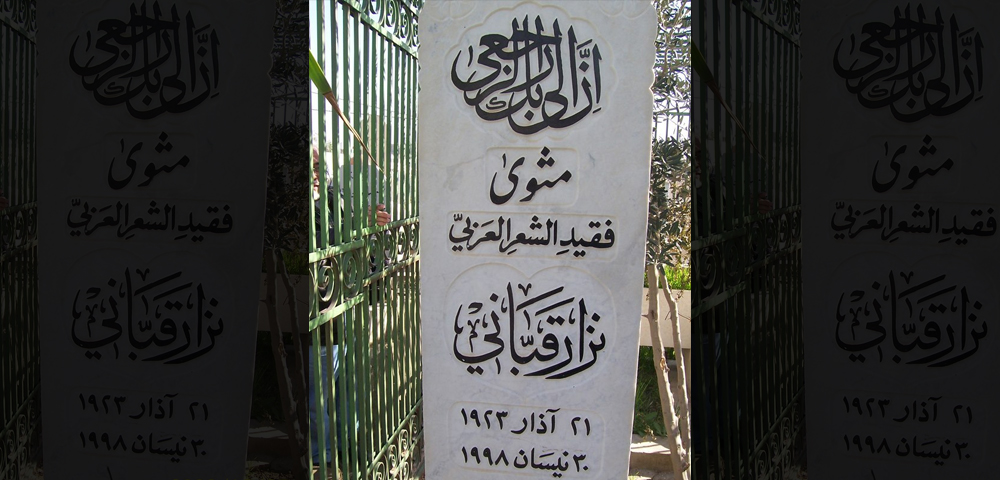 إنَّ إلى ربك الرجعى
مثوىٰ
فقيدِ الشعرِ العربيّ
نزار قبّاني
٢١ آذار ١٩٢٣
٣٠ نيسان ١٩٩٨